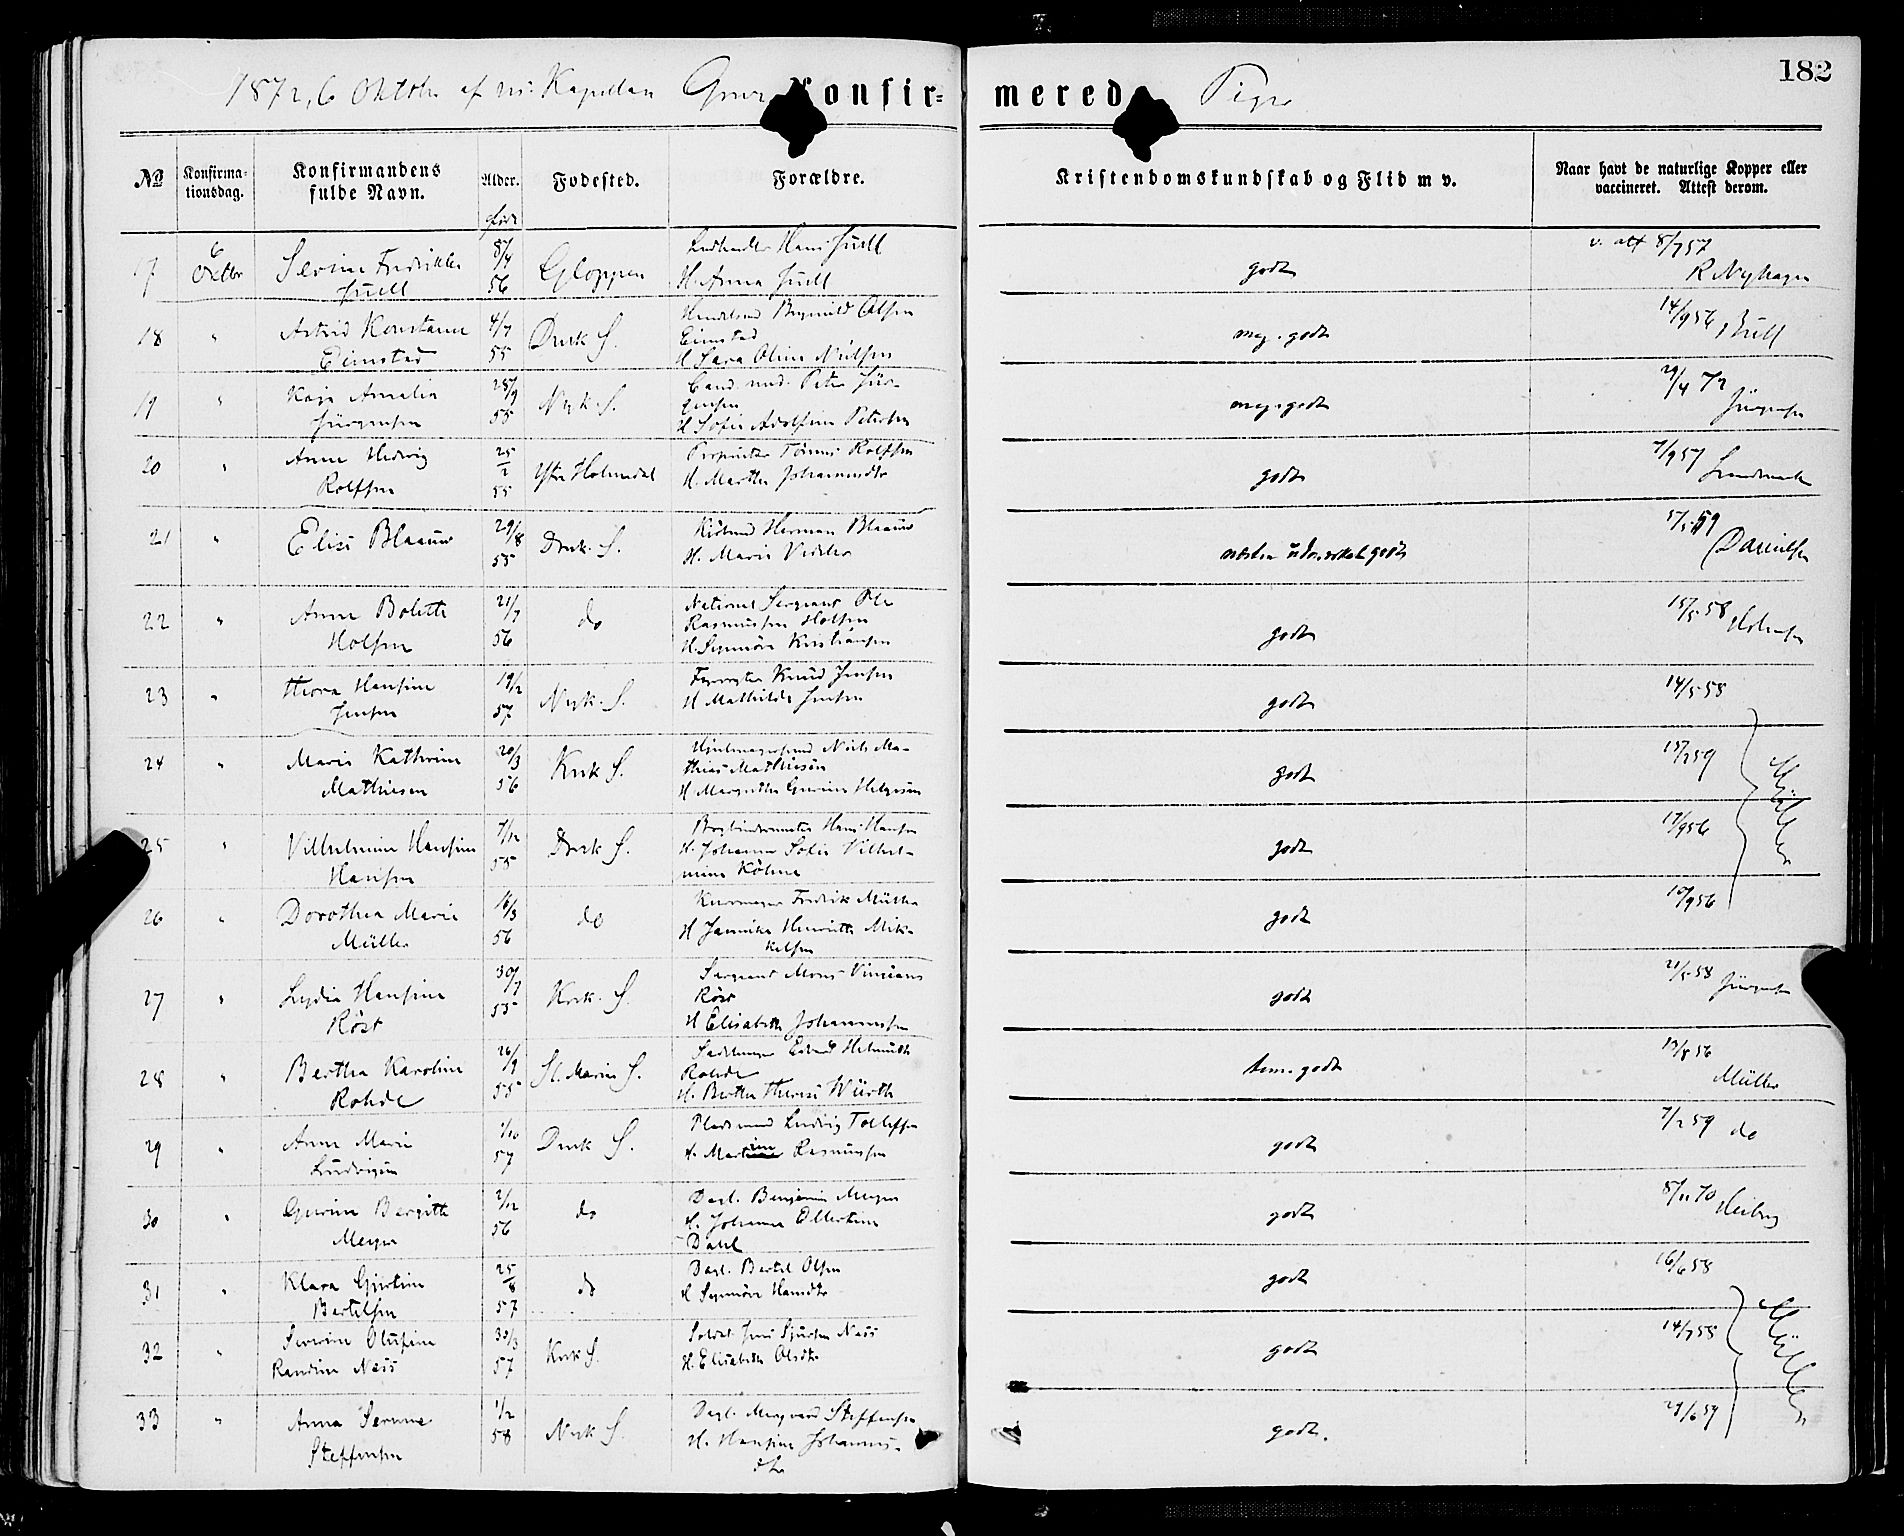 1872, 6 Oktobr af res. Kapellan
Konfir-
mered
Piger
182
No
Konfirma-
tionsdag.
Konfirmandens
fulde Navn.
Alder.
Fødested.
Forældre.
Kristendomskundskab og Flid m v.
Naar havt de naturlige Kopper eller
vaccineret. Attest derom.
født
17
6
Oktbr
Severine Fredrikke
Juell
8/4
56
Gloppen
Hans Juell
H. Anna Juell
godt
v. att 8/7 57
R Nyhagen
18
"
Astrid Konstanse
Eimstad
4/7
55
Dmk S.
Brynild Olsen
Eimstad
H Sara Oline Nielsen
meg. godt
14/9 56 Bull
19
"
Kaja Amalia
Jürgensen
28/9
55
Nyk. S.
Cand. med. Peter Jür-
gensen
H Sofie Adolfine Petersen
meg. godt
29/4 72
Jürgensen
20
"
Anne Hedvig
Rolfsen
25
2
55
Ytre Holmedal
Proprietær Tönnes Rolfsen
H. Marthe Johannesdtr
godt
7/9 57
21
"
Elise Blaauw
29/8
55
Dmk. S.
Kjöbmd Herman Blaauw
H. Marie
næsten udmerket godt
5/5 59
Danielsen
22
"
Anne Bolette
Holsen
21/7
56
do
National Sergeant Ole
Rasmussen Holsen
H. Synnöve Kristiansen
godt
15/5 58
23
"
Thora Hansine
Jensen
19/2
57
Nyk. S.
Knud Jensen
H Mathilde Jensen
godt
14/5 58
24
"
Marie Kathrine
Mathiesen
20/3
56
Krk S.
Hjulmagersvend Niels Ma-
thias Mathiesen
H Margrethe Gurine Helgesen
godt
15/2 59
Müller
25
"
Vilhelmine Hansine
Hansen
7/12
55
Dmk S.
Bogbindermester Hans Hansen
H. Johanne Sofie Vilhel-
mine Köhne
godt
17/9 56
26
"
Dorothea Marie
Müller
16/3
56
do
Kurvmager Fredrik Müller
H Jannike Henriette Mik-
kelsen
godt
10/9 56
27
"
Lydia Hansine
Röst
30/7
55
Krk. S.
Sergeant Mons Vincians
Röst
H Elisabeth Johannessen
godt
21/5 58 Jürgensen
28
"
Bertha Karoline
Rohde
26/9
55
St. Marie S.
Sadelmager Edvard Helmuth
Rohde
H. Berthe Therese Würth
tem. godt
13/8 56
Müller
29
"
Anne Marie
Ludvigsen
1/10
57
Dmk S.
Pladsmand Ludvig Tollefsen
H. Martine Rasmussen
godt
7/2 59 do
30
"
Gurine Bergitte
Meyer
2/12
56
do
Dagl. Benjamin Meyer
H. Johanne Ellertine
Dahl
godt
8/11 70 Heiberg
31
"
Klara Gjertine
Bertelsen
25
8
57
do
Dagl. Bertel Olsen
H Synnöve Hansdtr
godt
16/6 58
32
"
Severine Olufine
Randine Næss
30/3
57
Krk S.
Soldat Jens Sjursen Næss
H. Elisabeth Olsdtr
godt
14/7 58
Müller
33
"
Anna Serene
Steffensen
1/2
58
Nyk S.
Dagl. Steffensen
H. Hansine Johannes-
dtr
godt.
29/6 59